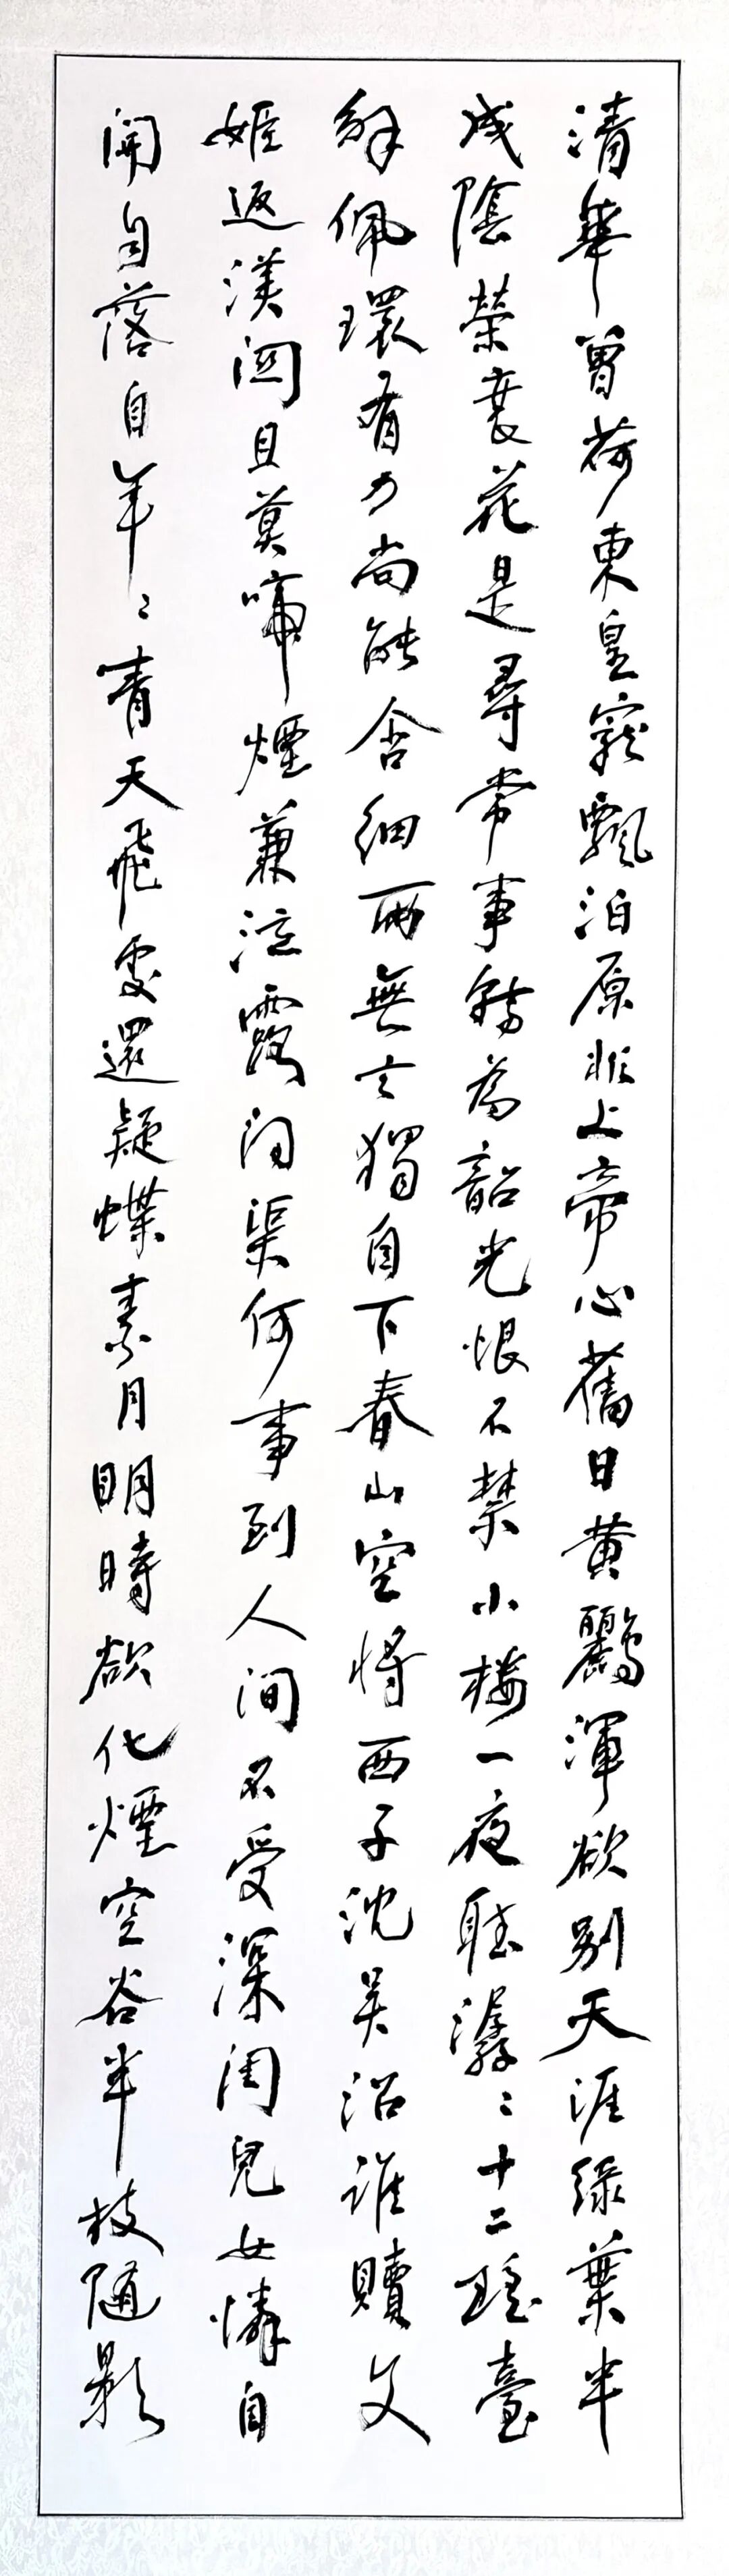 清華曾荷東皇寵飄泊原非上帝心舊日黃鸝渾欲別天涯綠葉半
成陰榮衰花是尋常事轉為韶光恨不禁小樓一夜聽潺〻十二瑤臺
解佩環有力尚能含細雨無言獨自下春山空將西子沈吴沼誰贖文
姬返漢関且莫啼煙兼泣露问渠何事到人间不受深闺兒女憐自
開自落自年〻青天飛處還疑蝶素月明時欲化煙空谷半枝随影